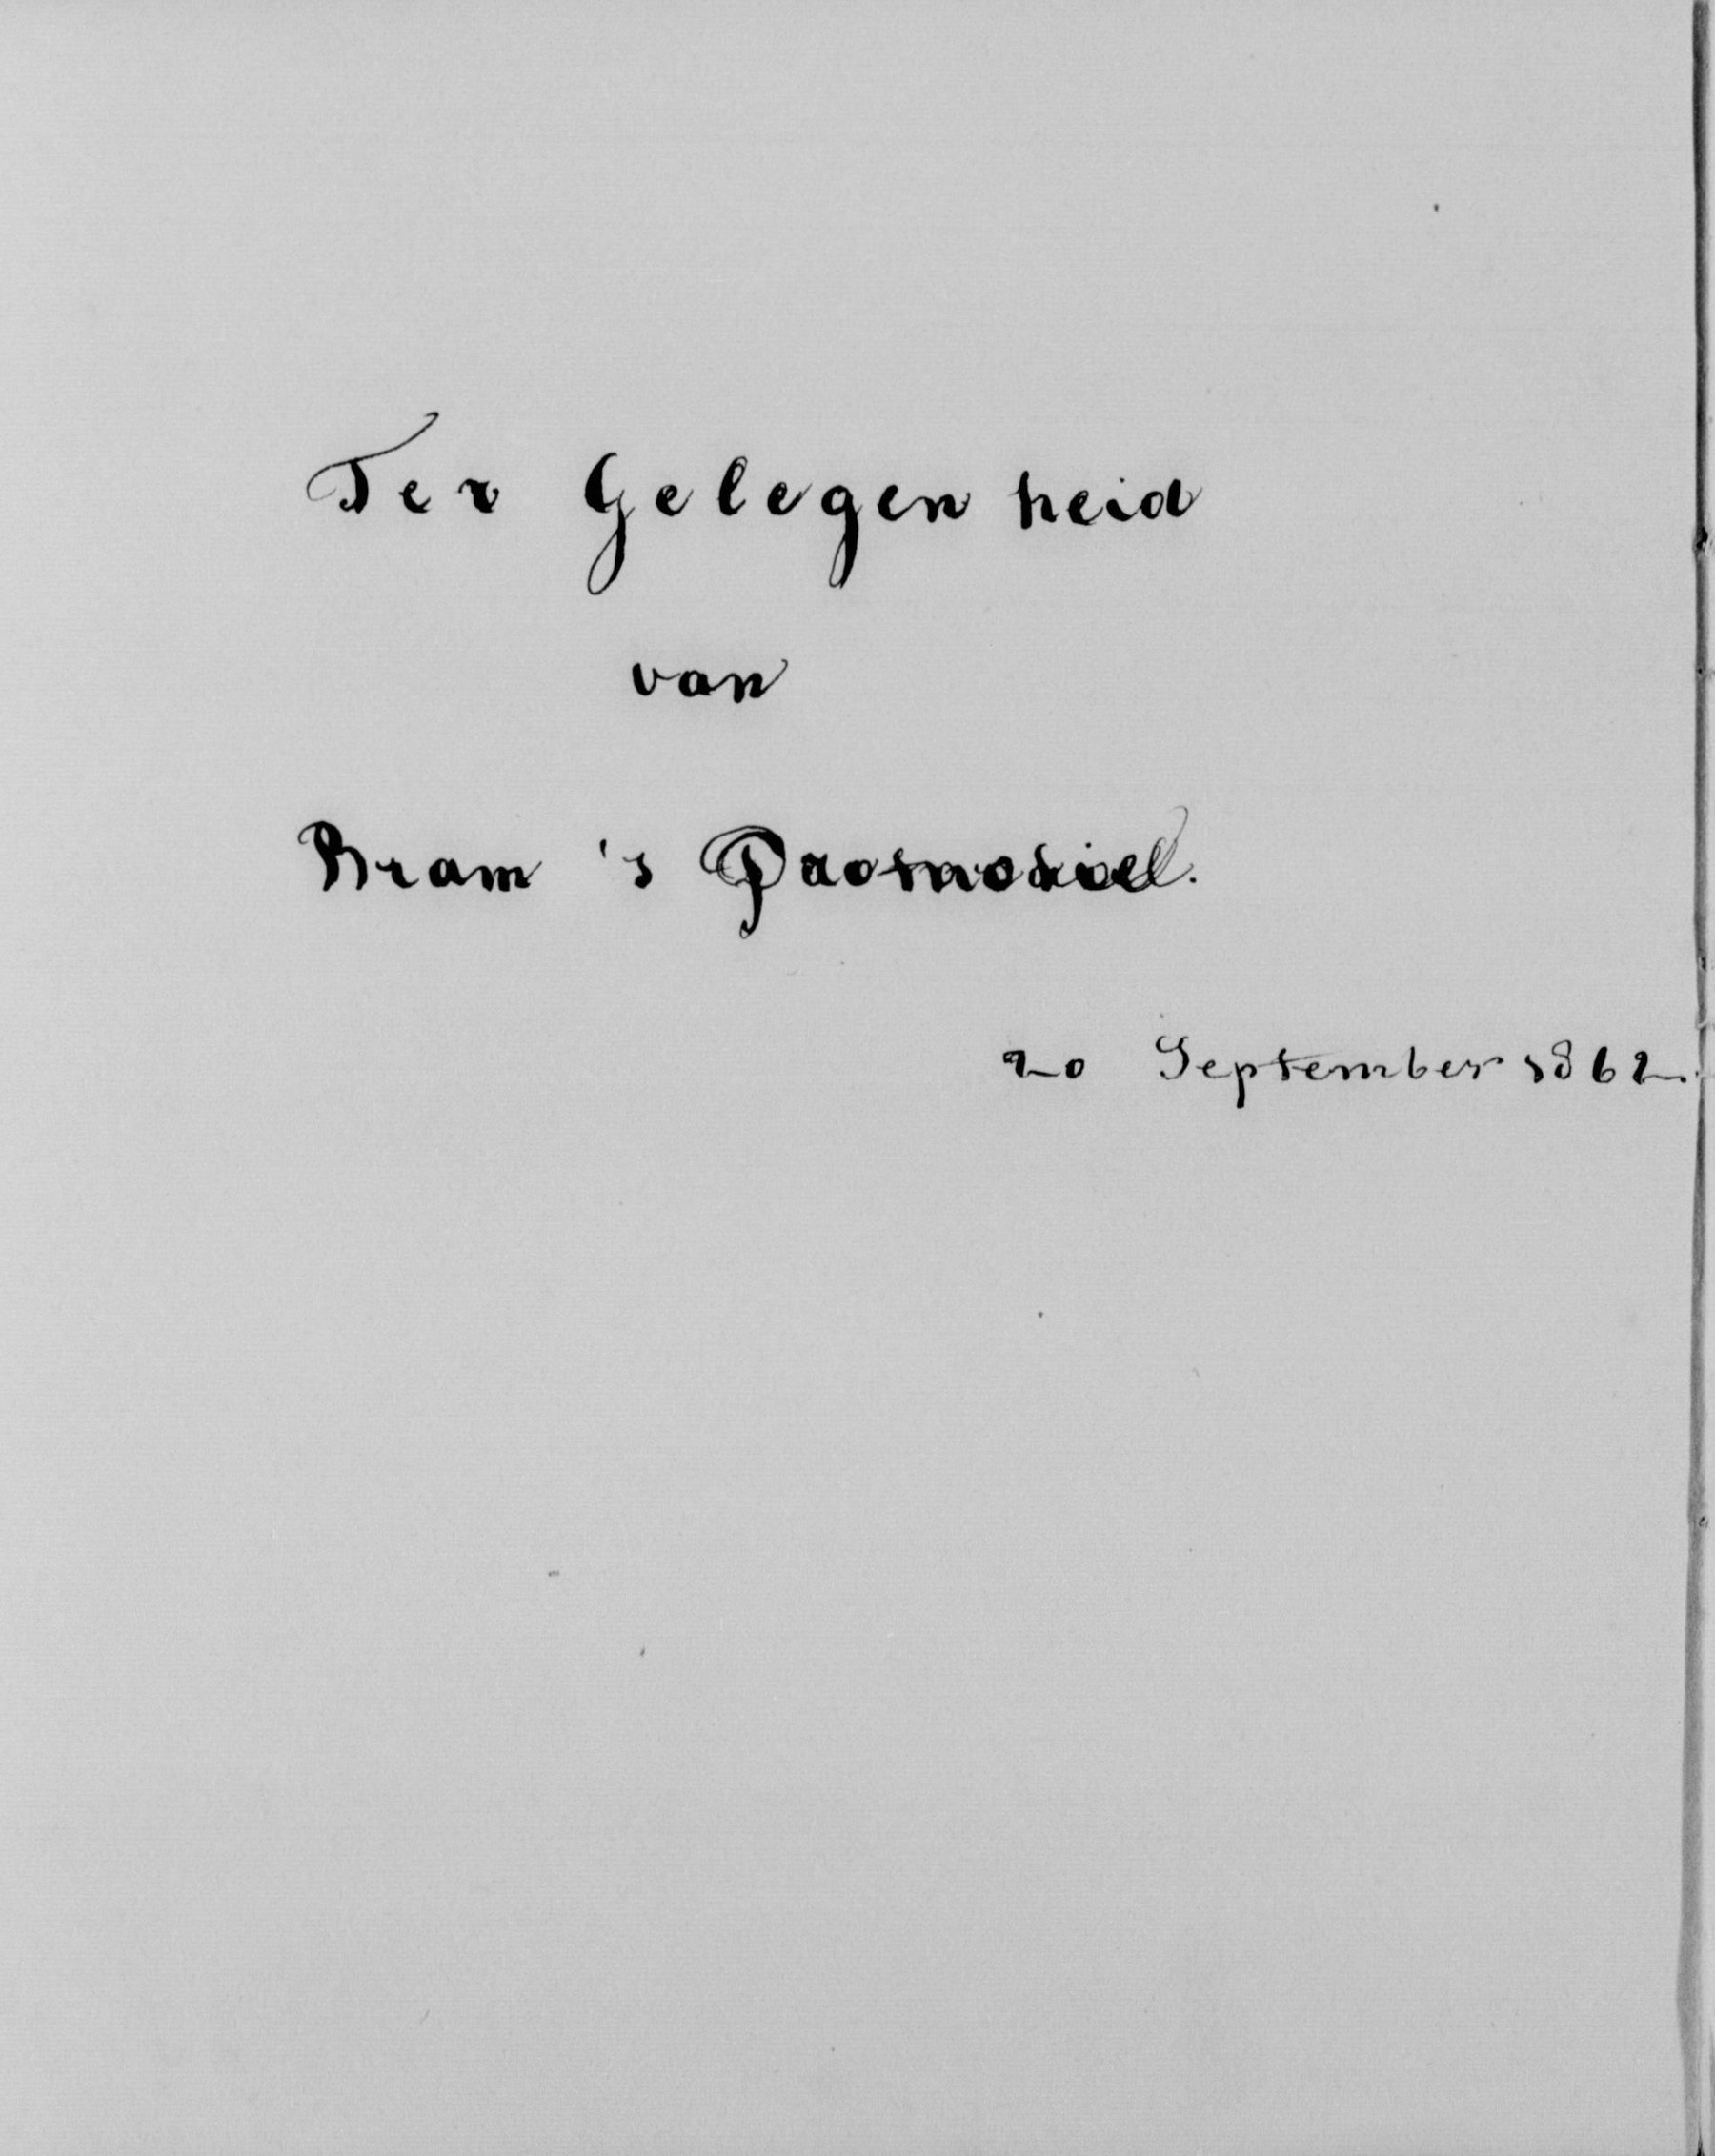 Ter Gelegenheid
van
Bram 's Promotie.
20 September 1862.